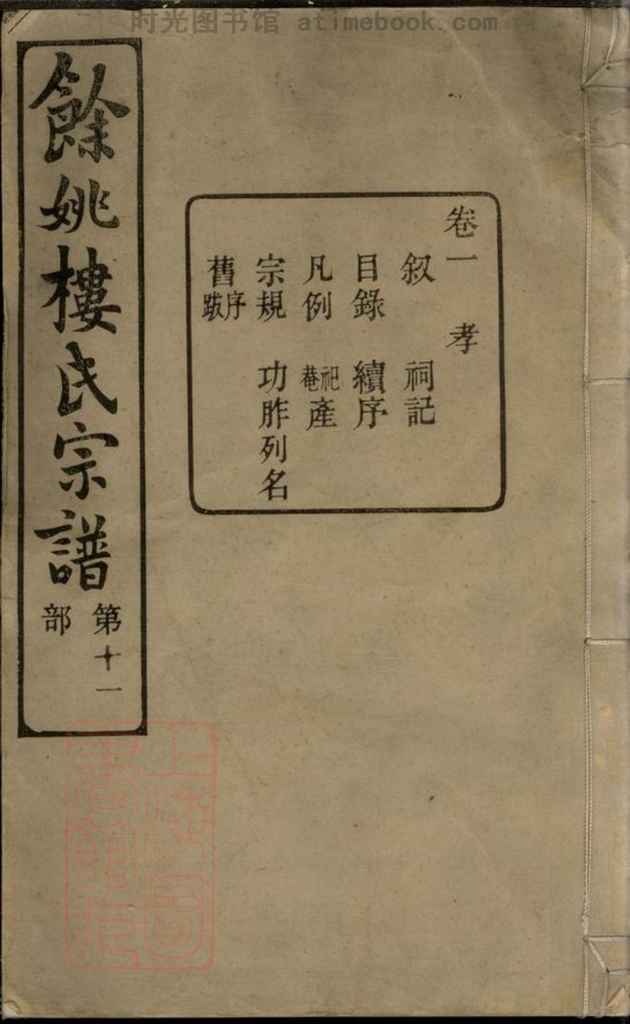 时光图书馆 atimebook.com
卷一 孝
叙 祠記
目錄 續序
凡例 祀菴產
宗規 功胙列名
舊序跋
餘姚樓氏宗譜
第十一
部